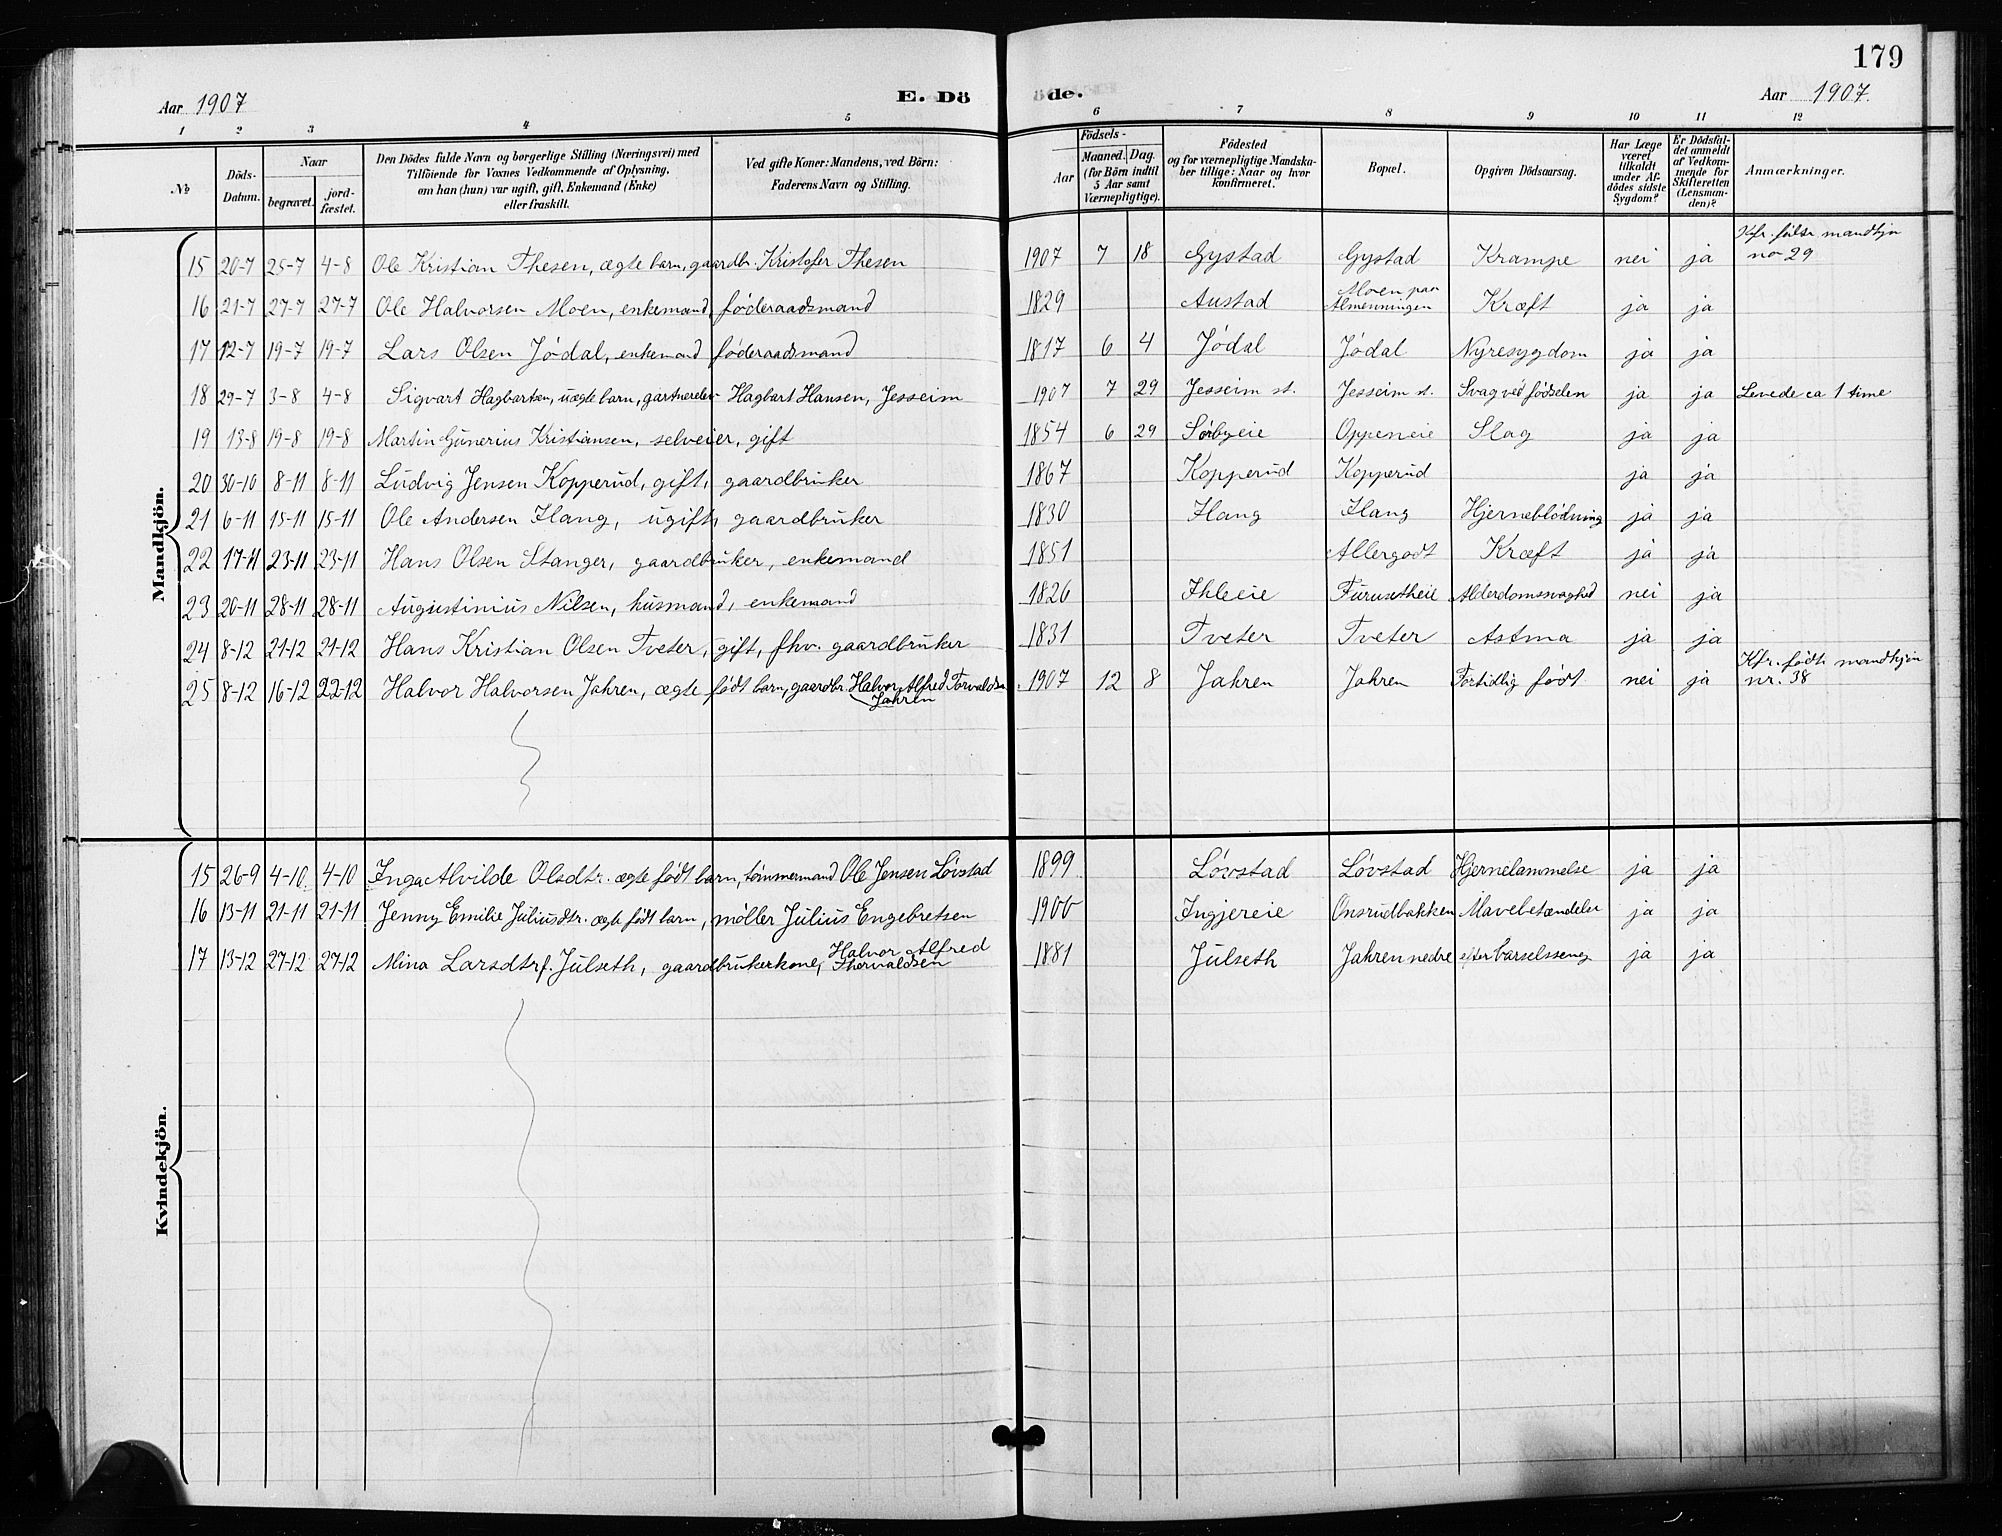 179
Aar 1907 E. Dö öde. Aar 1907.
1 2 3 4 5 6 7 8 9 10 11 12
№ Döds-Datum. Naar begravet. jord-fæstet. Den Dödes fulde Navn og borgerlige Stilling (Næringsvei) med Tilföiende for Voxnes Vedkommende af Oplysning, om han (hun) var ugift, gift, Enkemand (Enke) eller fraskilt. Ved gifte Koner: Mandens, ved Börn: Faderens Navn og Stilling. Födsels- Aar Maaned. Dag. (for Börn indtil 5 Aar samt Værnepligtige). Födested og for værnepligtige Mandskaber tillige: Naar og hvor konfirmeret. Bopæl. Opgiven Dödsaarsag. Har Læge været tilkaldt under Afdödes sidste Sygdom? Er Dödsfaldet anmeldt af Vedkommende for Skifteretten (Lensmanden)? Anmærkninger.
Mandkjön.
15 20-7 25-7 4-8 Ole Kristian Thesen, ægte barn, gaardbr. Kristofer Thesen 1907 7 18 Gystad Gystad Krampe nei ja Kfr. mandkjøn no 29
16 21-7 27-7 27-7 Ole Halvorsen Moen, enkemand, føderaadsmand 1829 Austad Moen paa Almenningen Kræft ja ja
17 12-7 19-7 19-7 Lars Olsen Jódal, enkemand føderaadsmand 1817 6 4 Jódal Jódal Nyresygdom ja ja
18 29-7 3-8 4-8 Sigvart Hagbartsen, uægte barn, gartnerelev Hagbart Hansen, Jesseim 1907 7 29 Jesseim st. Jesseim st. Svag ved fødselen ja ja Levede ca 1 time
19 13-8 19-8 19-8 Martin Gunerius Kristiansen, selveier, gift 1854 6 29 Sørbyeie Oppeneie Slag ja ja
20 30-10 8-11 8-11 Ludvig Jensen Kopperud, gift, gaardbruker 1867 Kopperud Kopperud ja ja
21 6-11 15-11 15-11 Ole Andersen Ilang, ugift, gaardbruker 1830 Ilang Ilang Hjerneblødning ja ja
22 17-11 23-11 23-11 Hans Olsen Stanger, gaardbruker, enkemand 1851 Allergodt Kræft ja ja
23 20-11 28-11 28-11 Augustinius Nilsen, husmand, enkemand 1826 Ihleeie Furusetheie Alderdomssvaghed nei ja
24 8-12 21-12 21-12 Hans Kristian Olsen Tveter, gift, fhv. gaardbruker 1831 Tveter Tveter Astma ja ja
25 8-12 16-12 22-12 Halvor Halvorsen Jahren, ægte født barn, gaardbr. Halvor Alfred Torvaldsen Jahren 1907 12 8 Jahren Jahren Fortidlig født nei ja Kfr. fødte mandkjøn nr. 38
Kvindekjön.
15 26-9 4-10 4-10 Inga Alvilde Olsdtr. ægte født barn, tømmermand Ole Jensen Løvstad 1899 Løvstad Løvstad Hjernelammelse ja ja
16 13-11 21-11 21-11 Jenny Emilie Juliusdtr. ægte født barn, møller Julius Engebretsen 1900 Ingjereie Onsrudbakken Mavebetændelse ja ja
17 13-12 27-12 27-12 Mina Larsdtr f. Julseth, gaardbrukerkone, Halvor Alfred Thorvaldsen 1881 Julseth Jahren nedre efter barselsseng ja ja